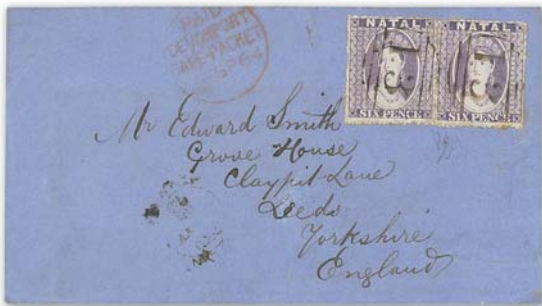 PAID
DEVONPORT
CAPE-PACKET
SP 64
NATAL NATAL
SIX PENCE SIX PENCE
Mr Edward Smith
Grove House
Claypit Lane
Leeds
Yorkshire
England